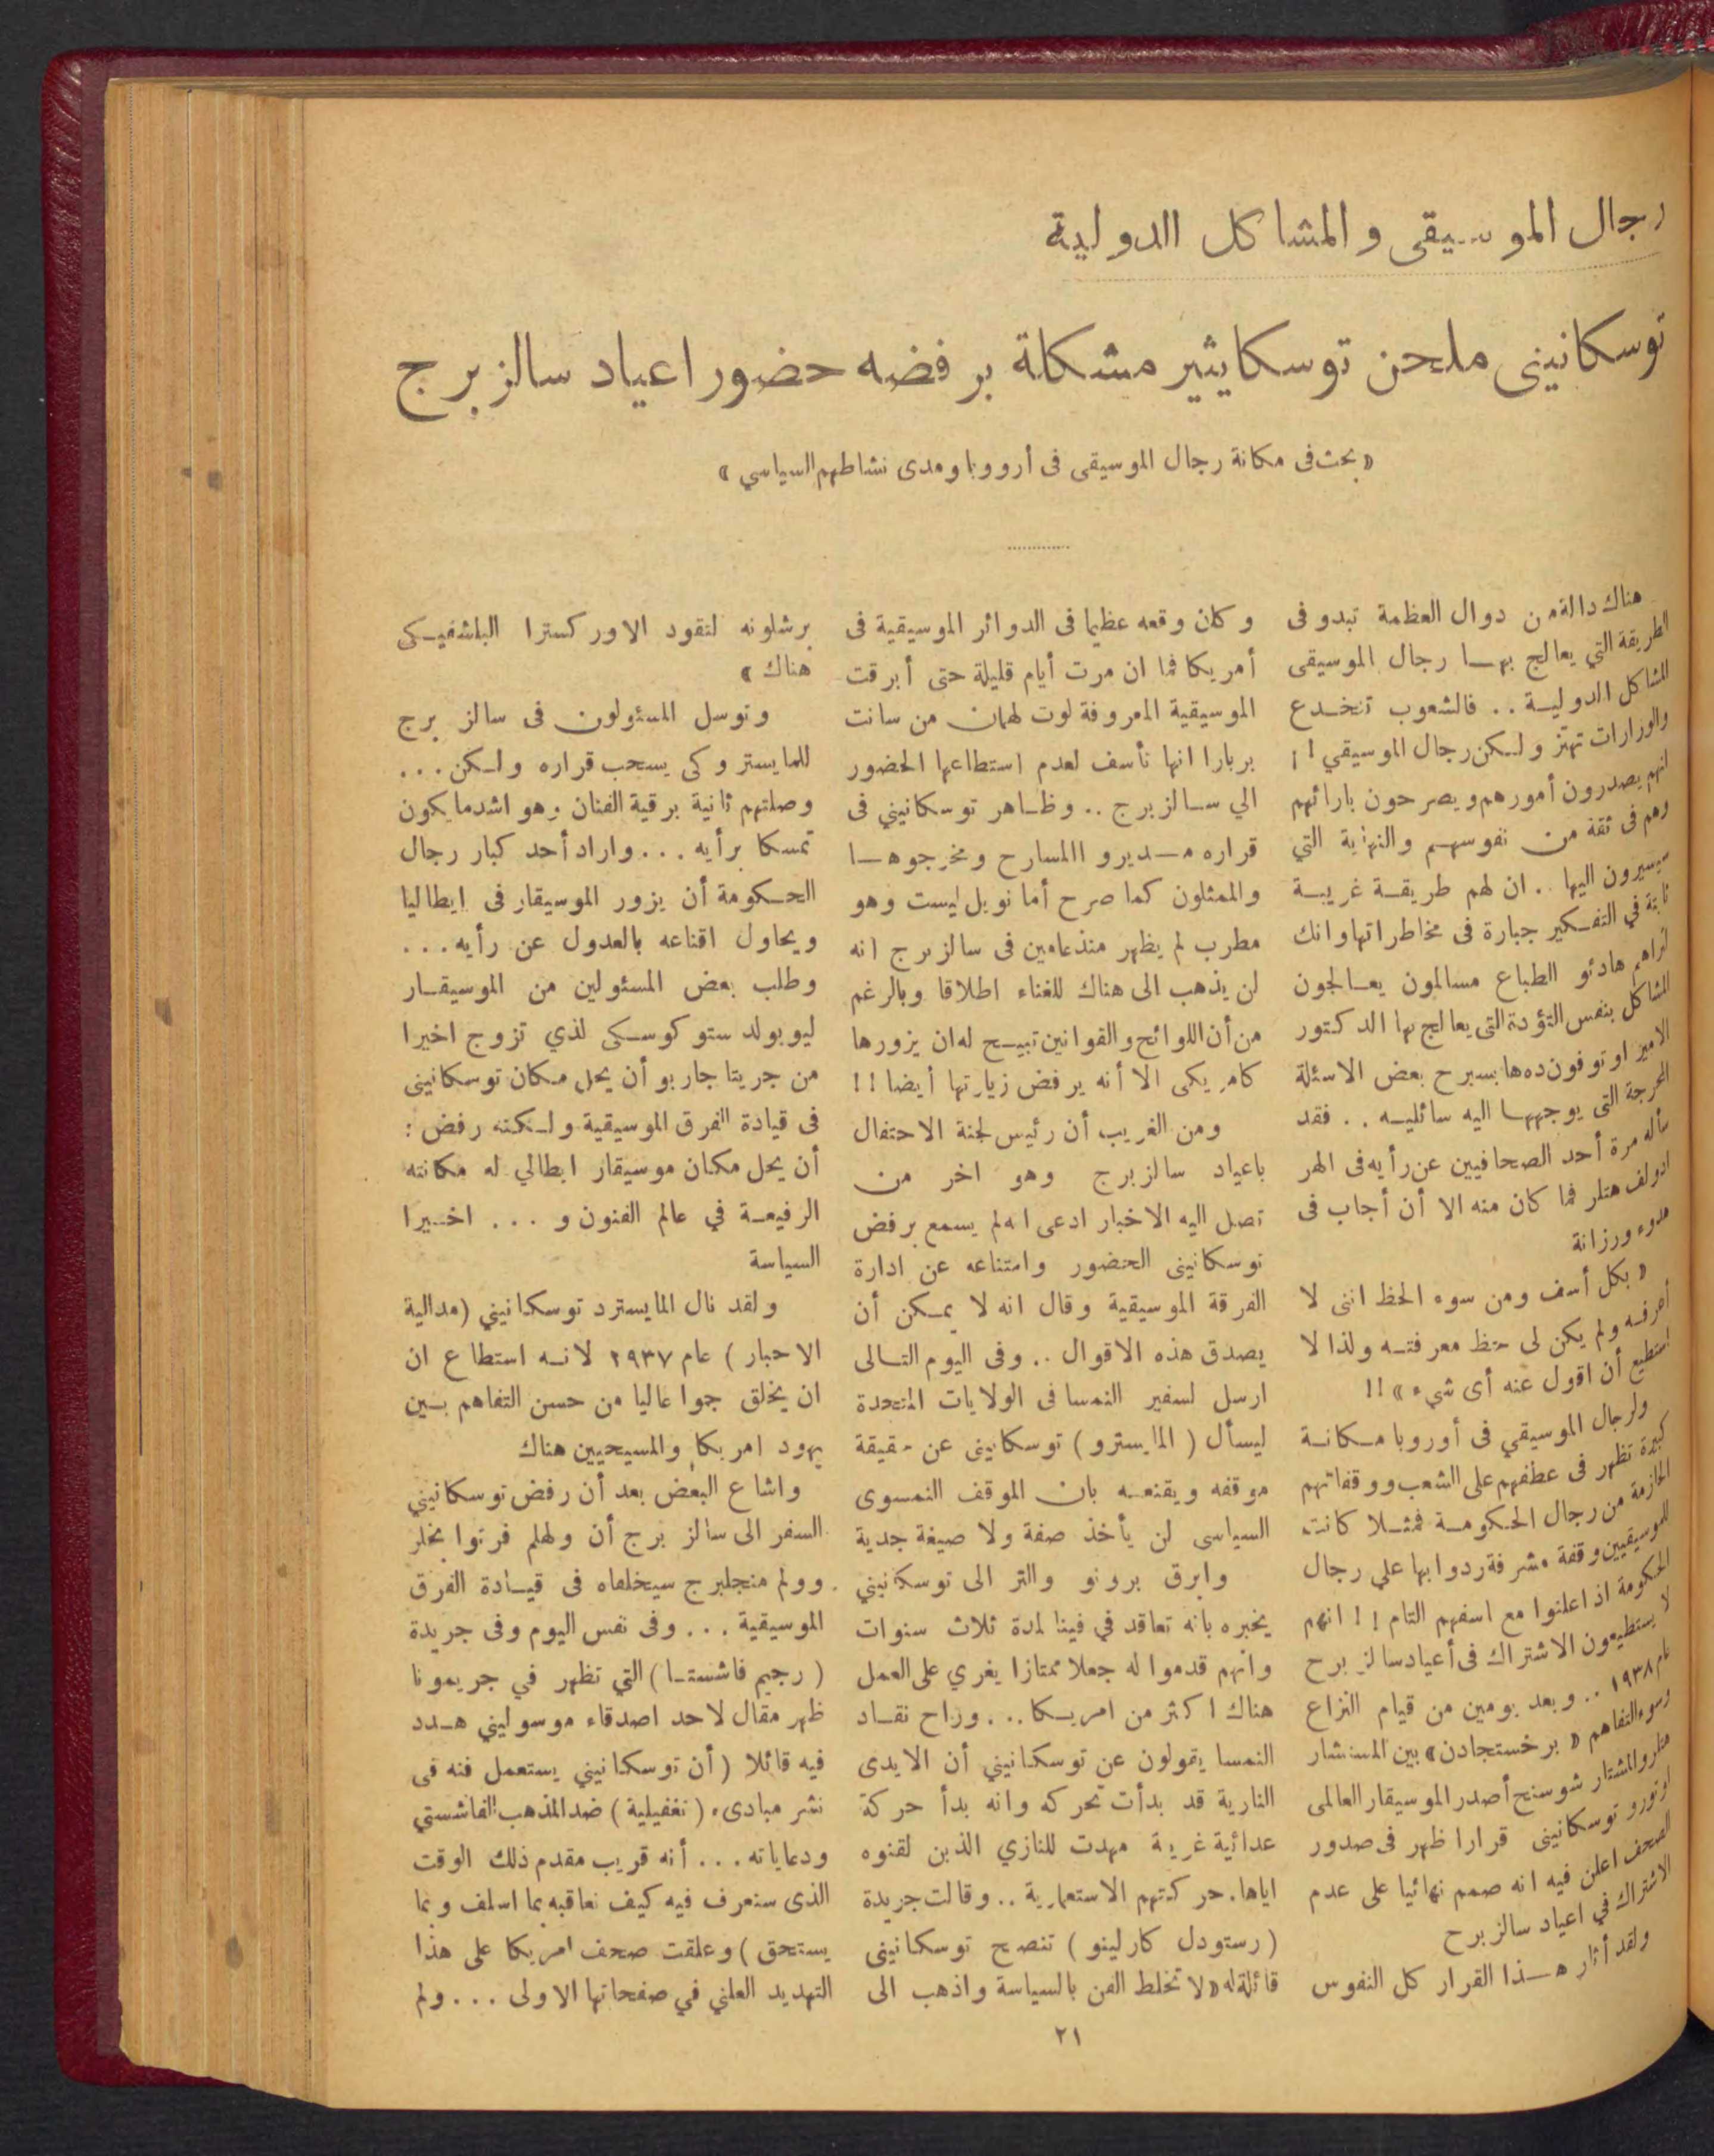 رجال الموسيقى والمشاكل الدولية
توسكانينى ملحن توسكا يثير مشكلة برفضه حضور اعياد سالزبرج
« بحث فى مكانة رجال الموسيقى فى أوروبا ومدى نشاطهم السياسي »
هناك دالة من دوال العظمة تبدو فى
الطريقة التي يعالج بهـا رجال الموسيقى
المشاكل الدوليـة .. فالشعوب تنخـدع
والوزارات تهتز ولـكن رجال الموسيقي !!
انهم يصدرون أمورهم ويصرحون بارائهم
وهم فى ثقة من نفوسهـم والنهاية التي
سيسيرون اليها .. ان لهم طريقـة غريبـة
ثابتة في التفـكير جبارة فى مخاطراتها وانك
لتراهم هادئو الطباع مسالمون يعـالجون
المشاكل بنفس التؤدة التى يعالج بها الدكتور
الامير اوتوفون ده هابسبرح بعض الاسئلة
المحرجة التى يوجههـا اليه سائليـه .. فقد
سأله مرة أحد الصحافيين عن رأيه فى الهر
ادولف هتلر فما كان منه الا أن أجاب فى
هدوء ورزانة
« بكل أسف ومن سوء الحظ اننى لا
أعرفـه ولم يكن لى حظ معرفتـه ولذا لا
استطيع أن اقول عنه أى شيء » !!
ولرجال الموسيقي فى أوروبا مـكانـة
كبيرة تظهر فى عطفهم على الشعب ووقفاتهم
الحازمة من رجال الحكومـة فمثـلا كانت
للموسيقيين وقفة مشرفة ردوا بها علي رجال
الحكومة اذ اعلنوا مع اسفهم التام !! انهم
لا يستطيعون الاشتراك فى أعياد سالزبرح
عام ١٩٣٨ .. وبعد يومين من قيام النزاع
وسوء التفاهم « برخستجادن » بين المستشار
هتلر والمشتار شوسنج أصدر الموسيقار العالمى
ارتورو توسكانينى قرارا ظهر فى صدور
الصحف اعلن فيه انه صمم نهائيا على عدم
الاشتراك في اعياد سالزبرح
ولقد أثار هـذا القرار كل النفوس
وكان وقعه عظيما فى الدوائر الموسيقية فى
أمريكا فما ان مرت أيام قليلة حتى أبرقت
الموسيقية المعروفة لوت لهمان من سانت
بربارا انها تأسف لعدم استطاعها الحضور
الي سـالزبرج .. وظـاهر توسكانيني فى
قراره مـديرو االمسارح ومخرجوهـا
والممثلون كما صرح أمانويل ليست وهو
مطرب لم يظهر منذ عامين فى سالزبرج انه
لن يذهب الى هناك للغناء اطلاقا وبالرغم
من أن اللوائح والقوانين تبيـح له ان يزورها
كامريكى الا أنه يرفض زيارتها أيضا !!
ومن الغريب أن رئيس لجنة الاحتفال
باعياد سالزبرج وهو اخر من
تصل اليه الاخبار ادعى انه لم يسمع برفض
توسكانينى الحضور وامتناعه عن ادارة
الفرقة الموسيقية وقال انه لا يمـكن أن
يصدق هذه الاقوال .. وفى اليوم التـالى
ارسل لسفير النمسا فى الولايات المتحدة
ليسأل ( المايسترو ) توسكانينى عن حقيقة
موقفه ويقنعـه بان الموقف النمسوى
السياسى لن يأخذ صفة ولا صيغة جدية
وابرق برونو والتر الى توسكانيني
يخبره بانه تعاقد في فينا لمدة ثلاث سنوات
وانهم قدموا له جعلا ممتازا يغري على العمل
هناك اكثر من امريـكا .. . وراح نقـاد
النمسا يقولون عن توسكانيني أن الايدى
النارية قد بدأت تحركه وانه بدأ حركة
عدائية غريبة مهدت للنازي الذين لقنوه
اياها . حركتهم الاستعمارية .. وقالت جريدة
( رستودل كارلينو ) تنصح توسكانينى
قائلة له « لا تخلط الفن بالسياسة واذهب الى
برشلونه لتقود الاوركسترا البلشفيـكى
هناك »
وتوسل المسئولون فى سالز برج
للمايسترو كى يسحب قراره ولـكن ...
وصلتهم ثانية برقية الفنان وهو اشد ما يكون
تمسكا برأيه ... واراد أحد كبار رجال
الحـكومة أن يزور الموسيقار فى ايطاليا
ويحاول اقناعه بالعدول عن رأيه ...
وطلب بعض المسئولين من الموسيقـار
ليوبولد ستوكوسـكى لذي تزوج اخيرا
من جريتا جاربو أن يحل مـكان توسكانينى
فى قيادة الفرق الموسيقية ولـكنه رفض :
أن يحل مكان موسيقار ايطالي له مكانته
الرفيعـة في عالم الفنون و ... اخـيرا
السياسة
ولقد نال المايسترد توسكانيني (مدالية
الاحبار ) عام ٢٩٣٧ لانـه استطاع ان
ان يخلق جوا عاليا من حسن التفاهم بـين
يهود امريكا والمسيحيين هناك
واشاع البعض بعد أن رفض توسكانيني
السفر الى سالز برج أن ولهلم فرتوا بخلر
وولم منجلبرج سيخلفاه فى قيـادة الفرق
الموسيقية ... وفى نفس اليوم وفى جريدة
( رجيم فاشستـا ) التي تظهر في جريمونا
ظهر مقال لاحد اصدقاء موسوليني هـدد
فيه قائلا ( أن توسكانيني يستعمل فنه فى
نشر مبادىء ( تغفيلية ) ضد المذهب الفاشستي
ودعاياته ... أنه قريب مقدم ذلك الوقت
الذى سنعرف فيه كيف نعاقبه بما اسلف وبما
يستحق ) وعلقت صحف امريكا على هذا
التهديد العلني في صفحاتها الاولى ... ولم
٢١